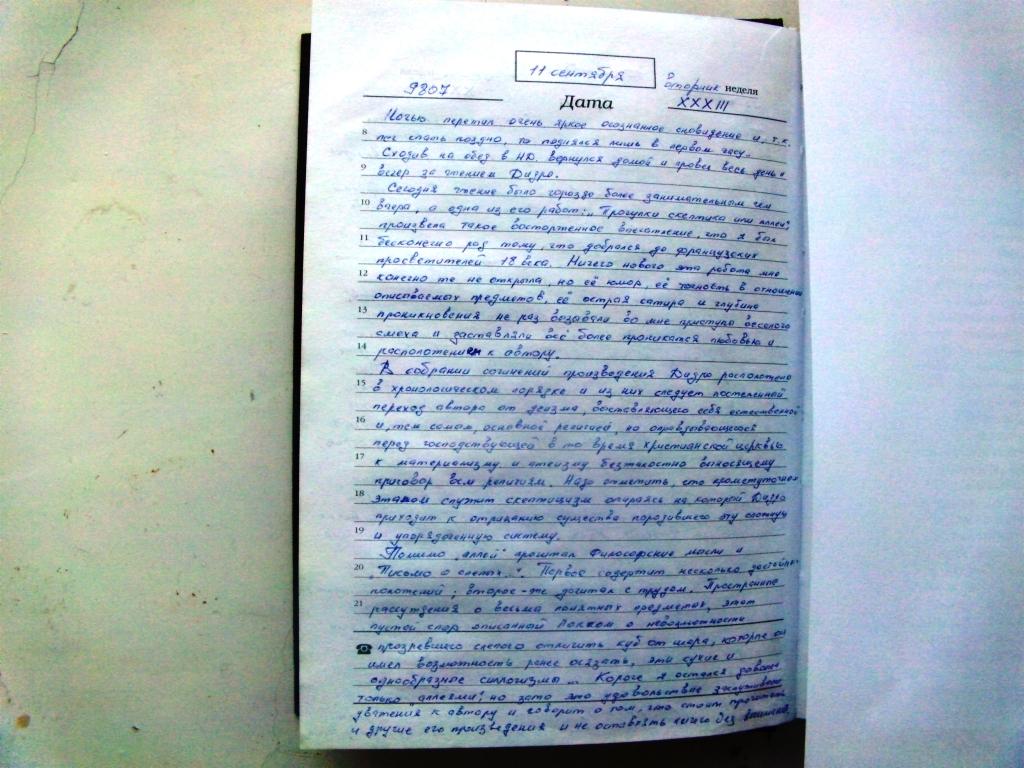 11 сентября
9807
Вторник неделя
Дата
XXXIII
Ночью перетал очень яркое осознанное сновидение и, т.к.
8 лег спать поздно, то поднялся лишь в первом часу.
Сходив на обед в НД. вернулся домой и провёл весь день и
9 вечер за чтением Дидро.
Сегодня чтение было гораздо более занимательным чем
10 вчера, а одна из его работ: „Прогулки скептика или аллеи",
произвела такое восторженное впечатление, что я был
11 бесконечно рад тому, что добрался до французских
просветителей 18 века. Ничего нового эта работа мне
12 конечно же не открыла, но её юмор, её точность в отношении
описываемых предметов, её острая сатира и глубина
13 проникновения не раз вызывали во мне приступы весёлого
смеха и заставляли всё более проникатся любовью и
14 расположением к автору.
В собрании сочинений произведения Дидро расположено
15 в хронологическом порядке и из них следует постепенный
переход автора от деизма, выставляющего себя естественной
16 и, тем самым, основной религией, но оправдывающегося
перед господствующей в то время христианской церквью
17 к материализму и атеизму безжалостно выносящему
приговор всем религиям. Надо отметить, что промежуточным
18 этапом служит скептицизм опираясь на который Дидро
приходит к отрицанию существа породившего эту сложную
19 и упорядоченную систему.
Помимо „аллей" прочитал Философские мысли и
20 „Письмо о слепых...". Первое содержит несколько достойных
положений; второе-же дочитал с трудом. Пространные
21 рассуждения о весьма понятных предметах, этот
пустой спор описанный Локком о невозможности
прозревшего слепого отличить куб от шара, которые он
имел возможность ранее осязать, эти сухие и
однообразные силлогизмы... Короче я остался доволен
только „аллеями", но зато это удовольствие заслуживает
уважения к автору и говорит о том, что стоит прочитать
и другие его произведения и не оставлять ничего без внимания.